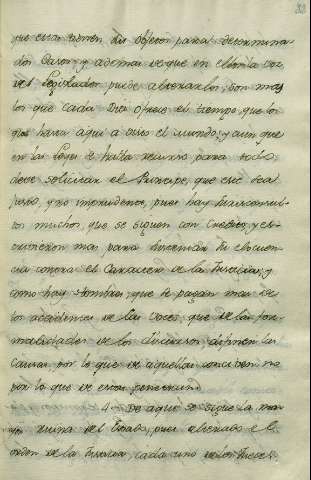 que estas tienen su objeto para determina-
dos casos y ademas de que en ellos la voz
del Legislador puede alterarlos; son mas
los que cada Dia ofrece el tiempo, que los
que havia aqui a todo el mundo; y aun que
en las Leyes se halle recurso para todo,
deve solicitar el Principe, que este sea
justo, y no imprudente, pues hay Jurisconsul-
tos muchos, que se siguen con credito, y es-
cribieron mas para obstentar su eloquen-
cia contra el Caracter de la Justicia; y
como hay hombres, que se pagan mas de
los accidentes de las Voces, que de las for-
malidades de los discursos, difinen las
Causas, por lo que de aquellas conciben no
por lo que de estas penetran.
4. De aqui se sigue la ma-
yor ruina del Estado; pues alterado el
orden de la Justicia, cada uno de los Jueces